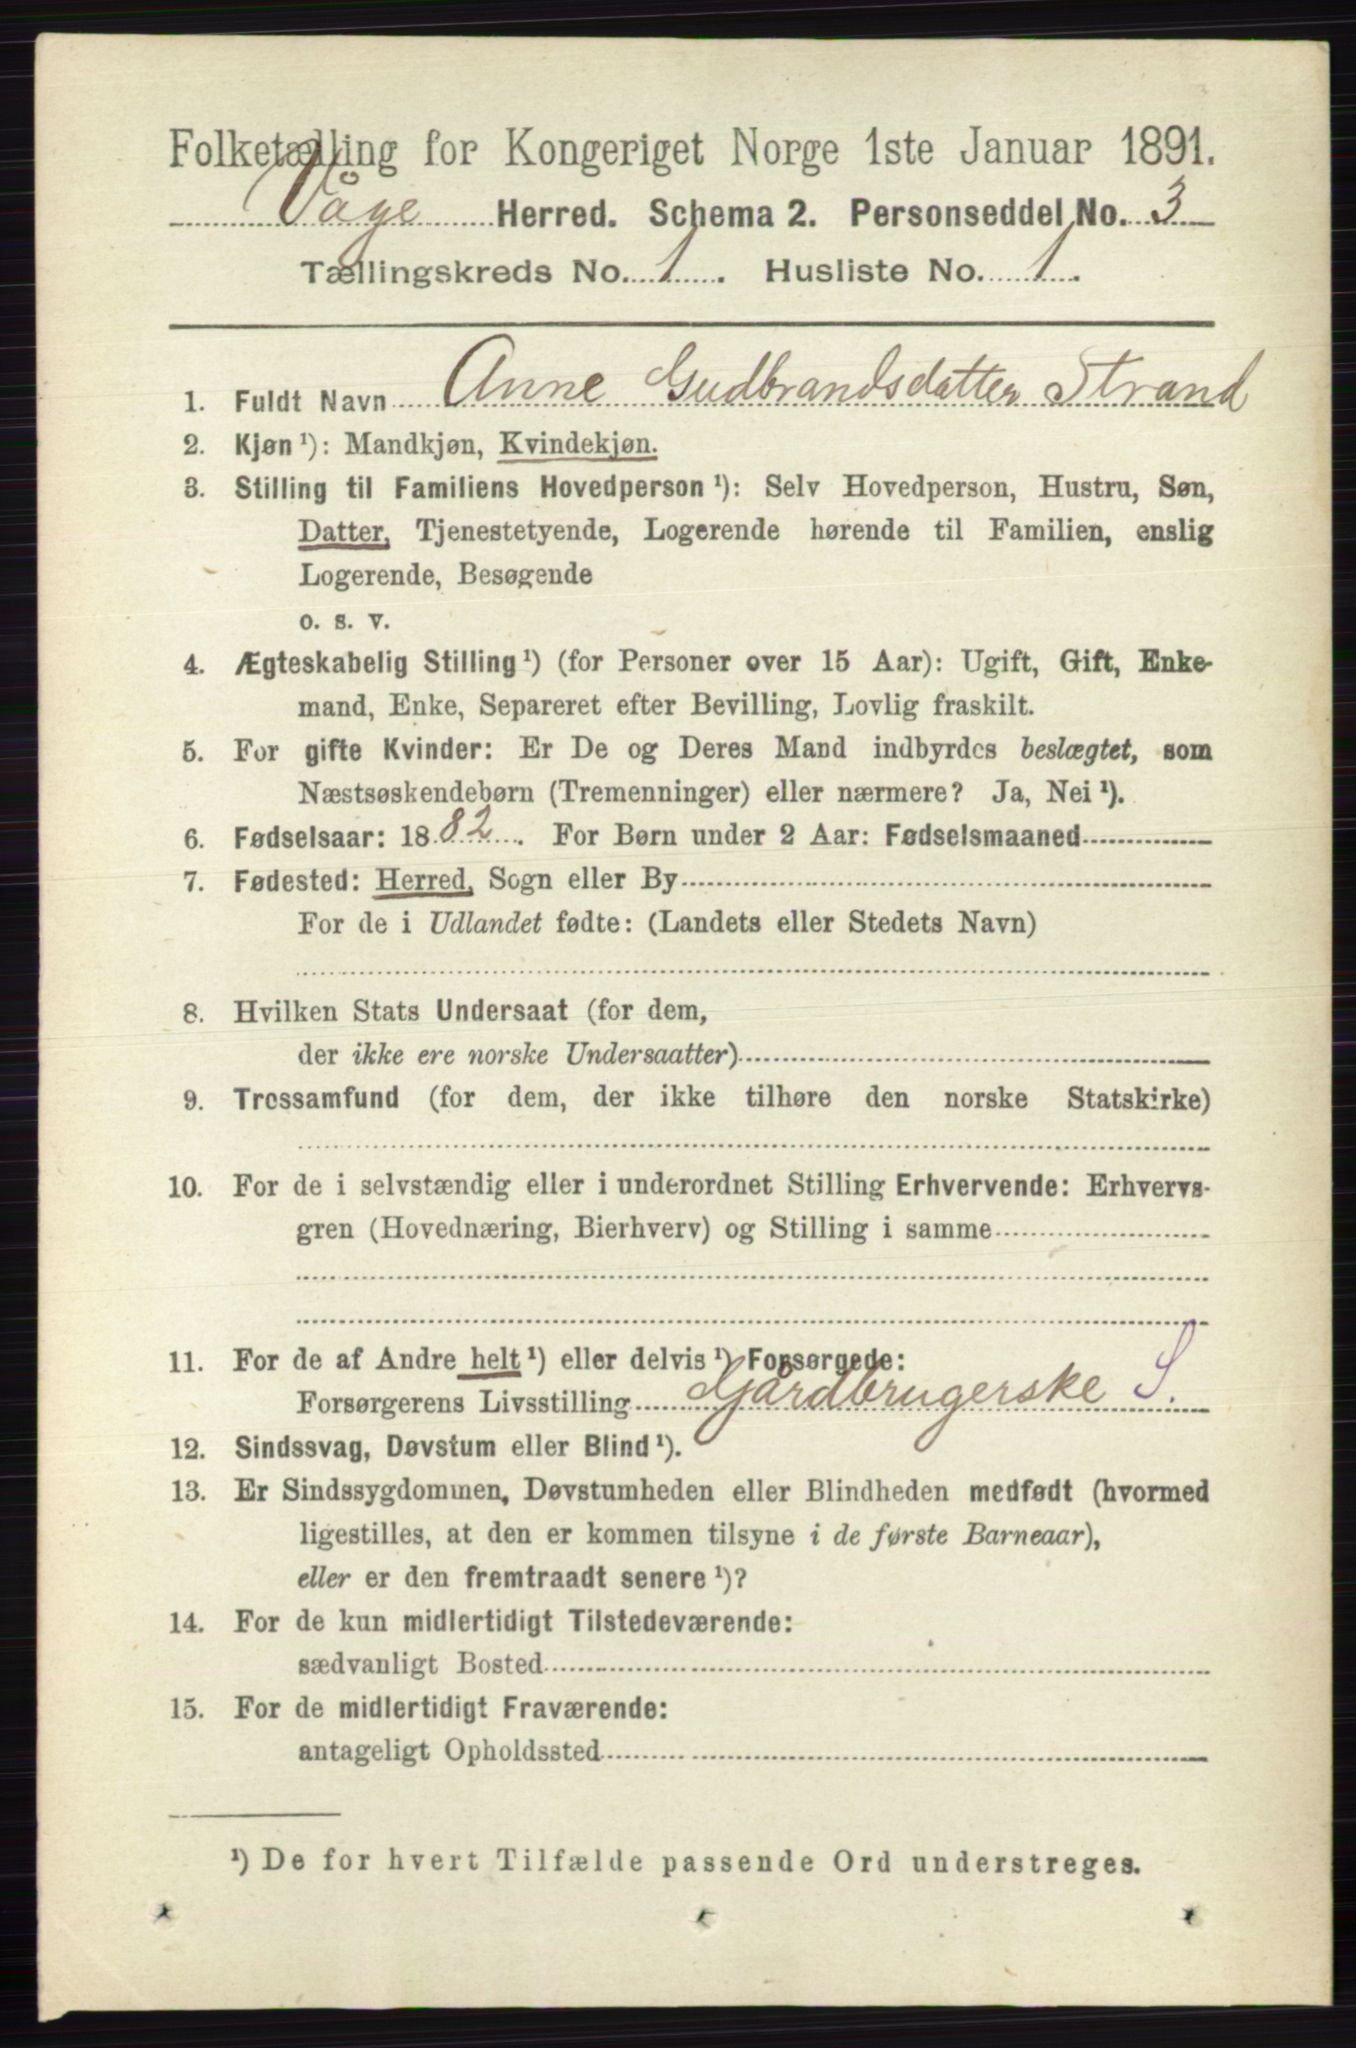 Folketælling for Kongeriget Norge 1ste Januar 1891.
Våge Herred. Schema 2. Personseddel No. 3
Tællingskreds No. 1. Husliste No. 1.
1. Fuldt Navn Anne Gudbrandsdatter Strand
2. Kjøn ¹): Mandkjøn, Kvindekjøn.
3. Stilling til Familiens Hovedperson ¹): Selv Hovedperson, Hustru, Søn,
Datter, Tjenestetyende, Logerende hørende til Familien, enslig
Logerende, Besøgende
o. s. v.
4. Ægteskabelig Stilling ¹) (for Personer over 15 Aar): Ugift, Gift, Enke-
mand, Enke, Separeret efter Bevilling, Lovlig fraskilt.
5. For gifte Kvinder: Er De og Deres Mand indbyrdes beslægtet, som
Næstsøskendebørn (Tremenninger) eller nærmere? Ja, Nei ¹).
6. Fødselsaar: 1882. For Børn under 2 Aar: Fødselsmaaned
7. Fødested: Herred, Sogn eller By
For de i Udlandet fødte: (Landets eller Stedets Navn)
8. Hvilken Stats Undersaat (for dem,
der ikke ere norske Undersaatter)
9. Trossamfund (for dem, der ikke tilhøre den norske Statskirke)
10. For de i selvstændig eller i underordnet Stilling Erhvervende: Erhvervs-
gren (Hovednæring, Bierhverv) og Stilling i samme
11. For de af Andre helt ¹) eller delvis ¹) Forsørgede:
Forsørgerens Livsstilling Gårdbrugerske S.
12. Sindssvag, Døvstum eller Blind ¹).
13. Er Sindssygdommen, Døvstumheden eller Blindheden medfødt (hvormed
ligestilles, at den er kommen tilsyne i de første Barneaar),
eller er den fremtraadt senere ¹)?
14. For de kun midlertidigt Tilstedeværende:
sædvanligt Bosted
15. For de midlertidigt Fraværende:
antageligt Opholdssted
¹) De for hvert Tilfælde passende Ord understreges.